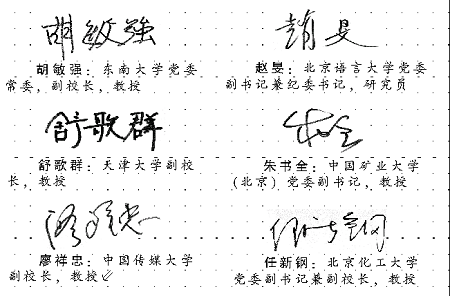 胡敏强 赵旻
胡敏强：东南大学党委
常委，副校长，教授
赵旻：北京语言大学党委
副书记兼纪委书记，研究员
舒歌群
舒歌群：天津大学副校
长，教授
朱书全：中国矿业大学
（北京）党委副书记，教授
廖祥忠：中国传媒大学
副校长，教授
任新钢：北京化工大学
党委副书记兼副校长，教授